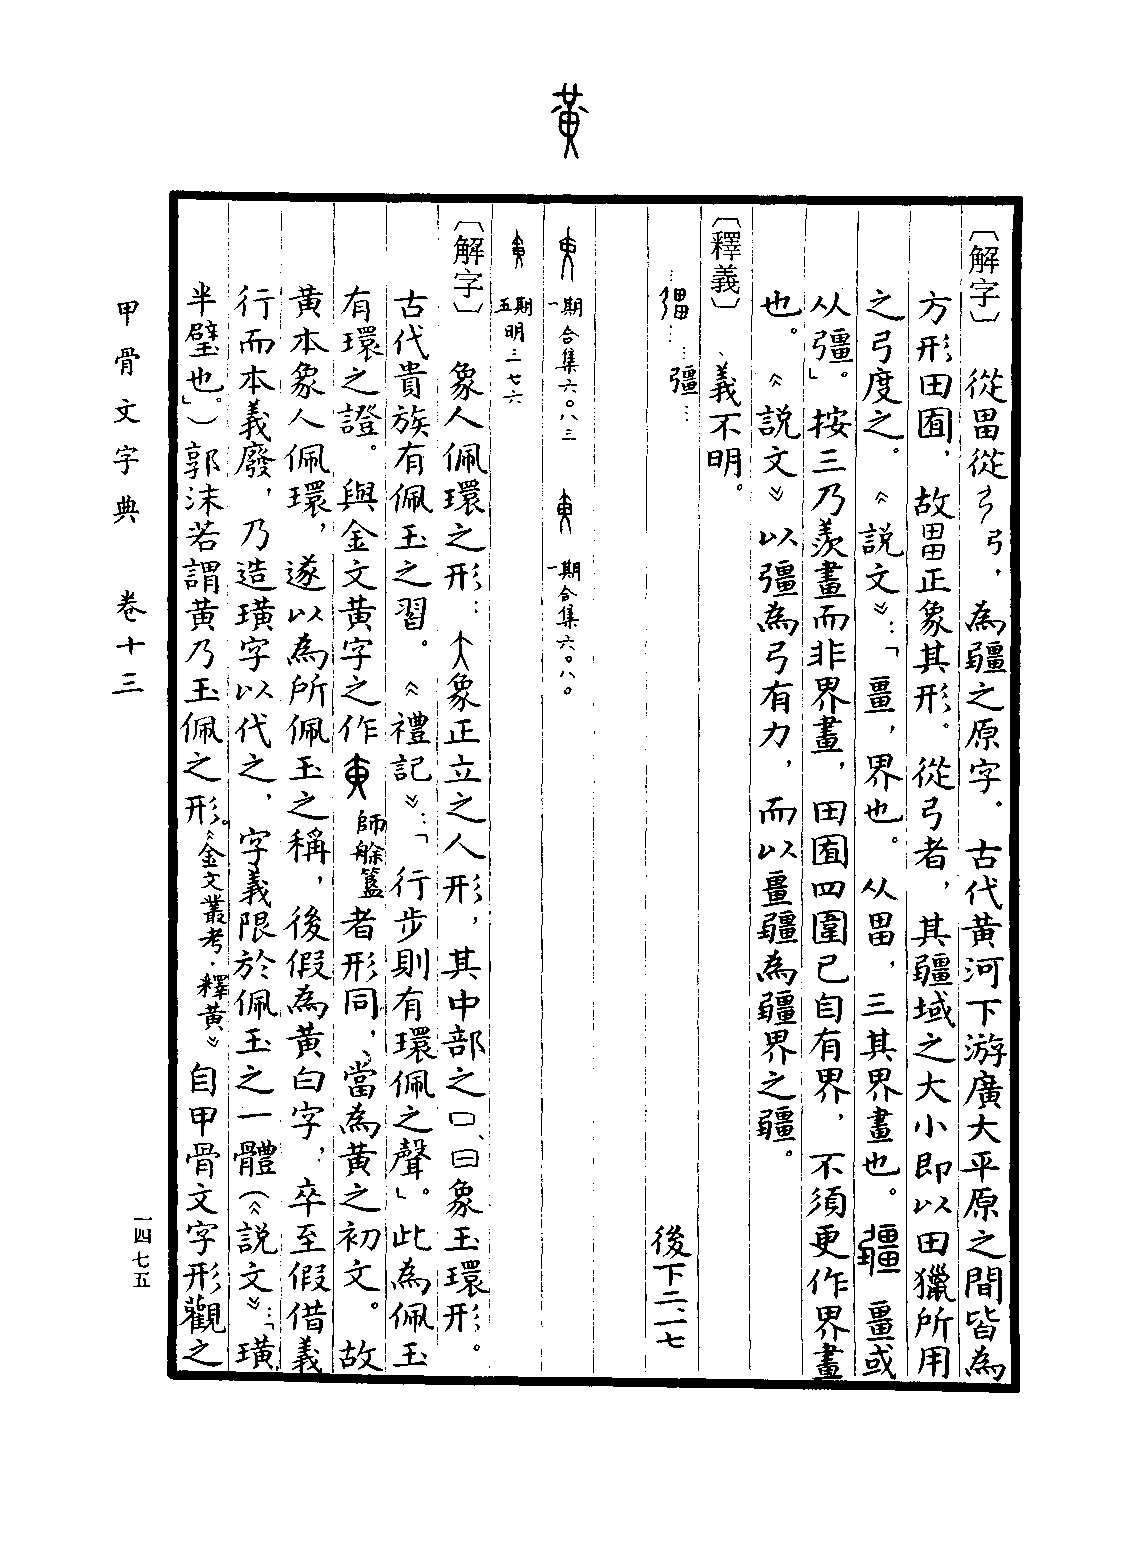 黃
〔解字〕 從畕從弓，為疆之原字。古代黃河下游廣大平原之間皆為
方形田囿，故畕正象其形。從弓者，其疆域之大小即以田獵所用
之弓度之。《說文》：「畺，界也。从畕，三其界畫也。疆 畺或
从彊」。按三乃羨畫而非界畫，田囿四圍已自有界，不須更作界畫
也。《說文》以彊為弓有力，而以畺疆為疆界之疆。
〔釋義〕 義不明。
…彊…彊… 後下二、一七
一期 合集六〇八三 一期 合集六〇八〇
五期 明三七六
〔解字〕 象人佩環之形：大象正立之人形，其中部之口、日象玉環形。
古代貴族有佩玉之習。《禮記》：「行步則有環佩之聲」。此為佩玉
有環之證。與金文黃字之作 師艅簋者形同，當為黃之初文。故
黃本象人佩環，遂以為所佩玉之稱，後假為黃白字，卒至假借義
行而本義廢，乃造璜字以代之，字義限於佩玉之一體（《說文》：「璜，
半璧也。」）郭沫若謂黃乃玉佩之形。《金文叢考．釋黃》自甲骨文字形觀之
甲骨文字典 卷十三
一四七五